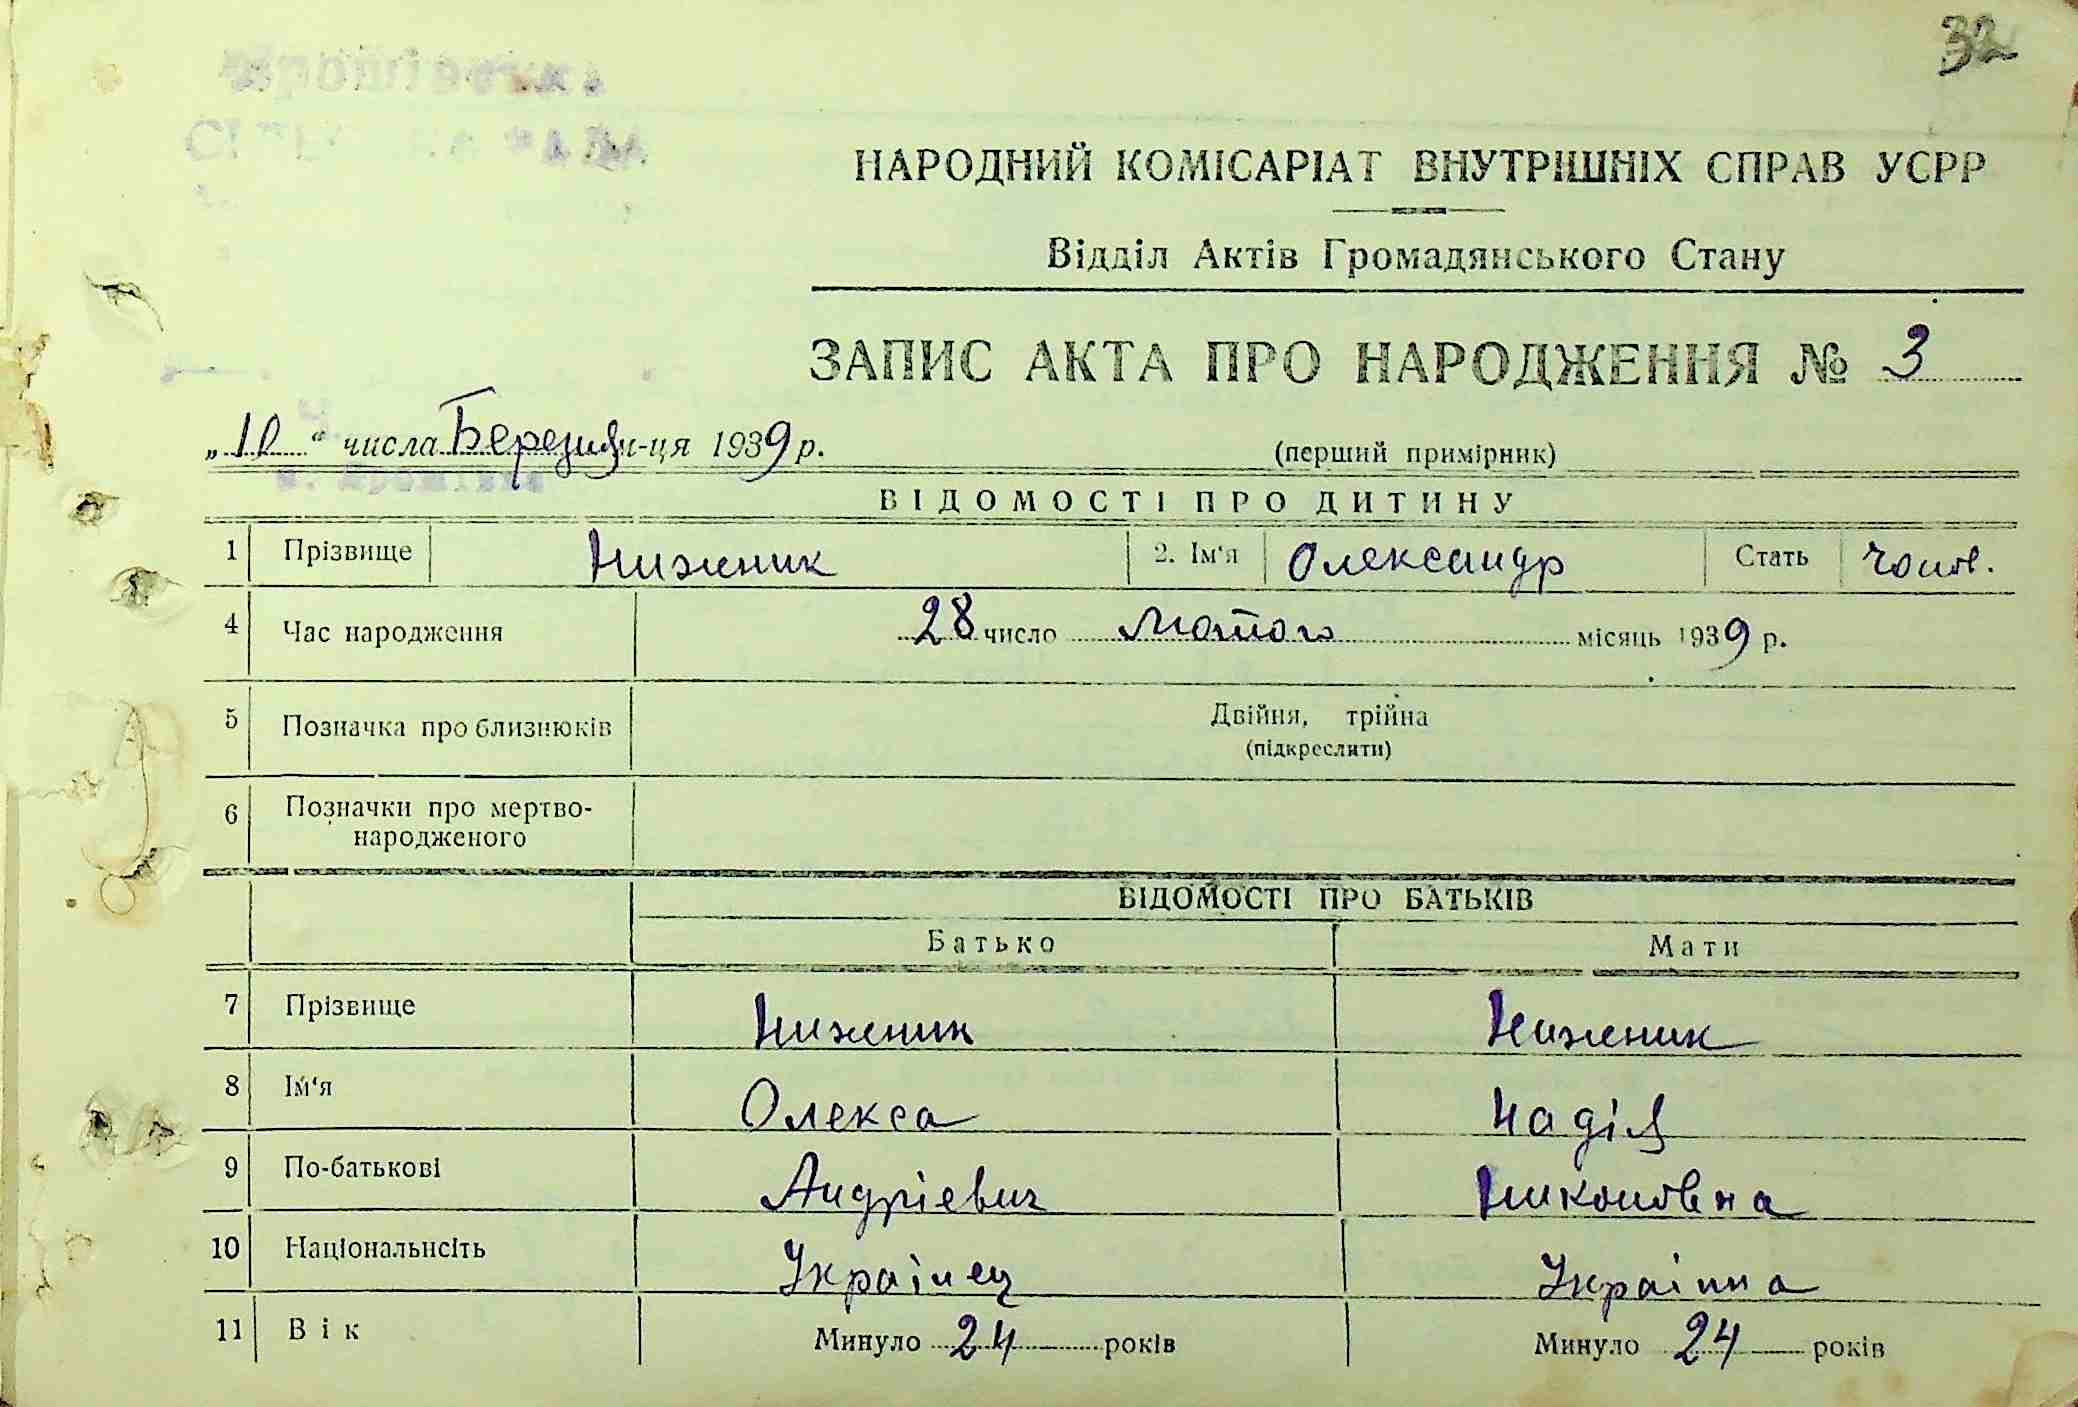 32
НАРОДНИЙ КОМІСАРІАТ ВНУТРІШНІХ СПРАВ УСРР
Відділ Актів Громадянського Стану
ЗАПИС АКТА ПРО НАРОДЖЕННЯ № 3
„10“ числа Березня м-ця 1939 р. (перший примірник)
ВІДОМОСТІ ПРО ДИТИНУ
1 Прізвище Ниженик 2. Ім'я Олександр Стать чолов.
4 Час народження 28 число Лютого місяць 1939 р.
5 Позначка про близнюків Двійня, трійна
(підкреслити)
6 Позначки про мертво-
народженого
ВІДОМОСТІ ПРО БАТЬКІВ
Батько Мати
7 Прізвище Ниженик Ниженик
8 Ім'я Олекса Надія
9 По-батькові Андрієвич Никоновна
10 Національнсіть Українец Українка
11 Вік Минуло 24 років Минуло 24 років